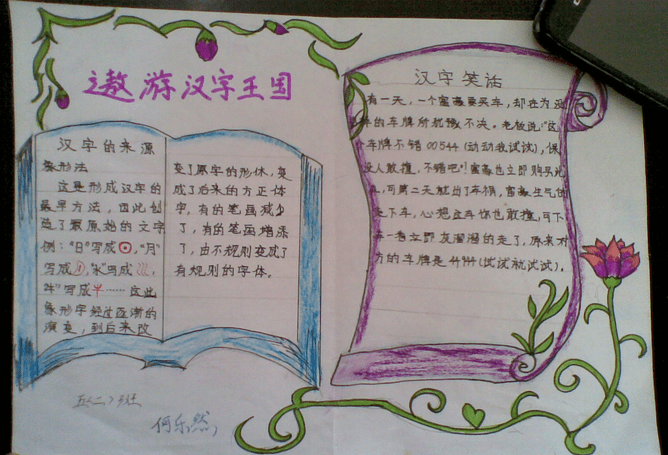 遨游汉字王国
汉字的来源
象形法
这是形成汉字的
最早方法,因此创
造了最原始的文字
例:"日"写成⊙,"月"
写成,"水"写成
"牛"写成……这些
象形字经过逐渐的
演变,到后来改
变了原字的形体,变
成了后来的方正体
字,有的笔画减少
了,有的笔画增添
了,由不规则变成了
有规则的字体。
五(二)班
何乐然
汉字笑话
有一天,一个富豪要买车,却在为
的车牌所犹豫不决。老板说:"这
车牌不错00544(动动我试试),保
没人敢撞,不错吧!"富豪也立即购买
,可第二天就出了车祸,富豪生气
走下车,心想这车你也敢撞,可下
车一看立即灰溜溜的走了,原来对
方的车牌是44944(试试就试试)。